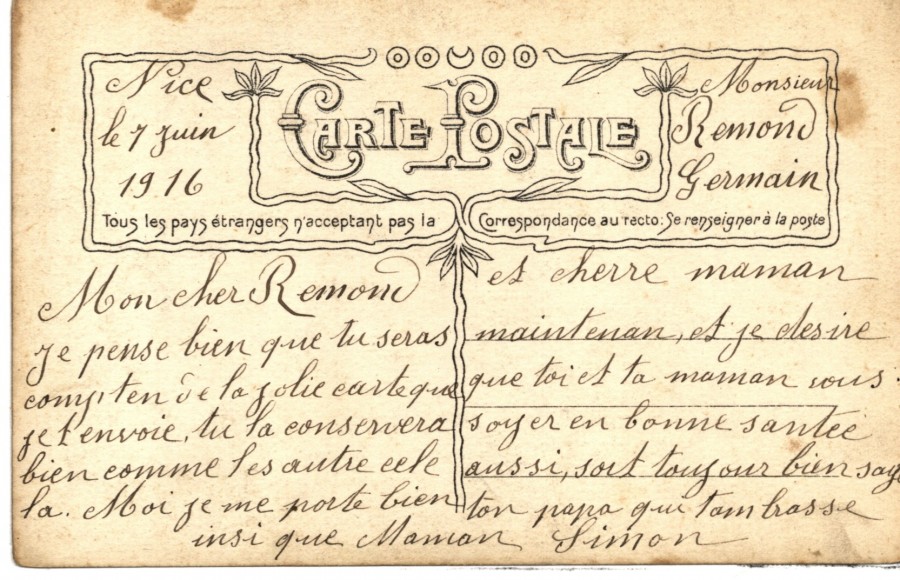 Nice
le 7 juin
1916
CARTE POSTALE
Monsieur
Remond
Germain
Tous les pays étrangers n'acceptant pas la Correspondance au recto: Se renseigner à la poste
Mon cher Remond
je pense bien que tu seras
compten de la jolie carte que
je t envoie, tu la conservera
bien comme les autre cele
la. Moi je me porte bien
insi que Maman
et cherre maman
maintenan, et je desire
que toi et ta maman vous
soyer en bonne santée
aussi, soit toujour bien sage
ton papa qui tambrasse
Simon